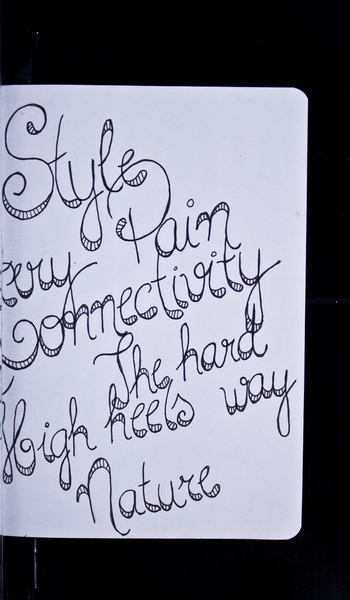 Style
Pain
Connectivity
The hard
way
High heels
Nature